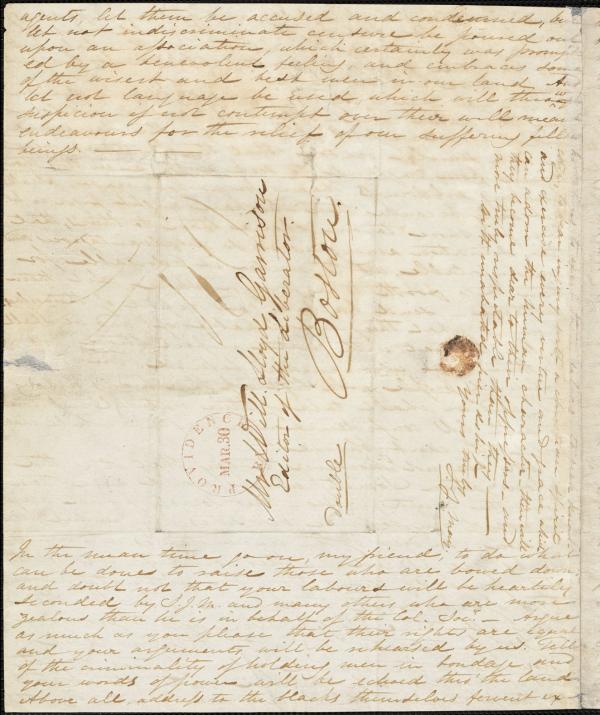 agents, let them be accused and condemned, but
let not indiscriminate censure be poured out
upon an association, which certainly was prompt
ed by a benevolent feeling, and embraces some
of the wisest and best men in our land
let not language be used, which will throw
suspicion if not contempt over their well mean
endeavours for the relief of our suffering fell
beings. —
Mr. Will. Lloyd Garrison
Editor of the Liberator
Boston.
Double
PROVIDENCE
MAR. 30
and every virtue and grace which
can adorn the human character, then will
they become dear to their oppressors — and
more truly respectable than they
With unabated friendship
Yours truly
S. J. May
In the mean time go on, my friend, to do what
can be done to raise those who are bowed down,
and doubt not that your labours will be heartily
seconded by S. J. M. and many others who are more
zealous than he is in behalf of the Col. Soc. — Argue
as much as you please that their rights are equal
and your arguments will be rehearsed by us. Tell
of the criminality of holding men in bondage and
your words of will be echoed thro the land
Above all, address to the blacks themselves fervent ex-